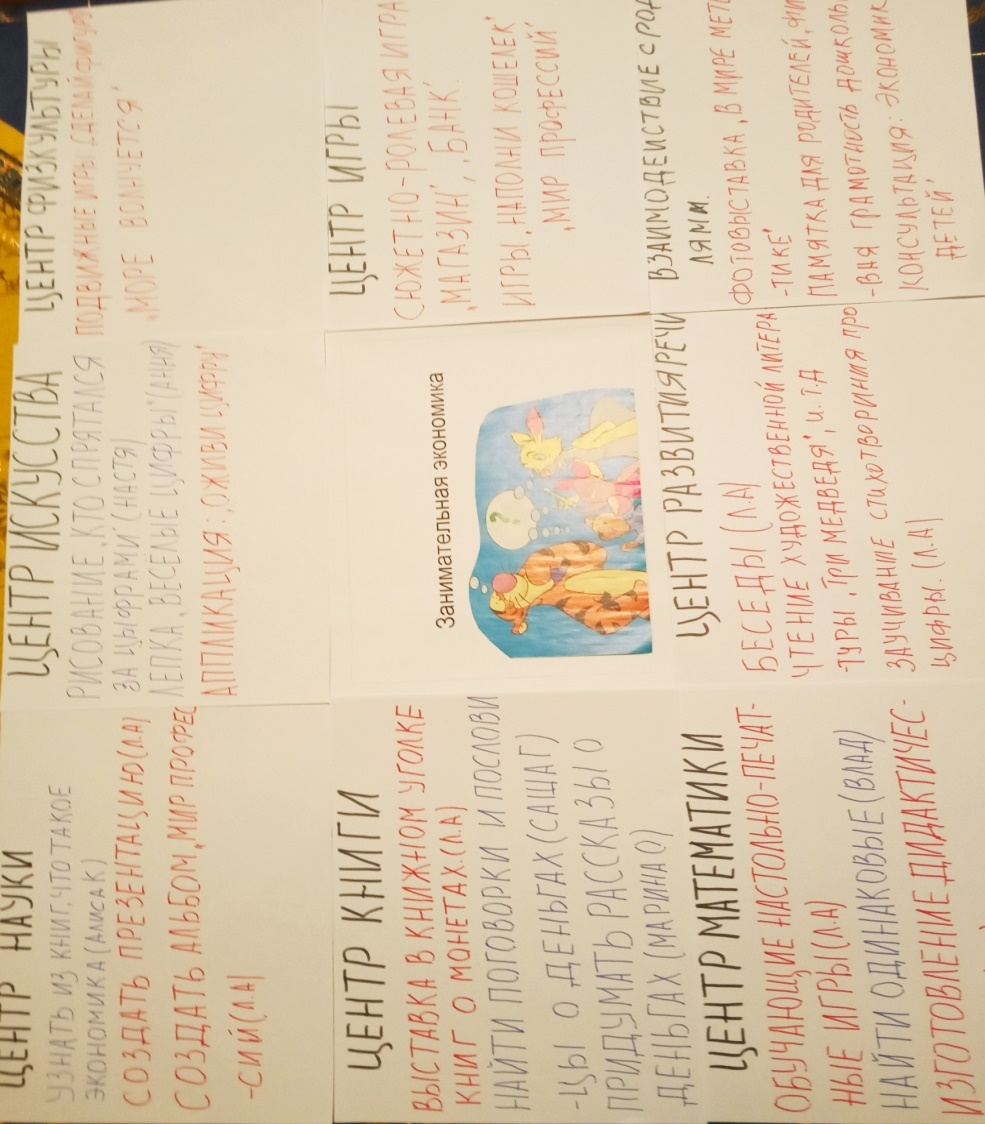 ЦЕНТР НАУКИ
УЗНАТЬ ИЗ КНИГ, ЧТО ТАКОЕ
ЭКОНОМИКА (АЛИСА К)
СОЗДАТЬ ПРЕЗЕНТАЦИЮ (Л.А)
СОЗДАТЬ АЛЬБОМ „МИР ПРОФЕС
-СИЙ (Л.А)
ЦЕНТР ИСКУССТВА
РИСОВАНИЕ „КТО СПРЯТАЛСЯ
ЗА ЦЫФРАМИ" (НАСТЯ)
ЛЕПКА „ВЕСЁЛЫЕ ЦИФРЫ" (АННЯ)
АППЛИКАЦИЯ: „ОЖИВИ ЦИФРУ"
ЦЕНТР ФИЗКУЛЬТУРЫ
ПОДВИЖНЫЕ ИГРЫ „СДЕЛАЙ ФИГУРУ
„МОРЕ ВОЛНУЕТСЯ"
ЦЕНТР КНИГИ
ВЫСТАВКА В КНИЖНОМ УГОЛКЕ
КНИГ О МОНЕТАХ. (Л.А)
НАЙТИ ПОГОВОРКИ И ПОСЛОВИ
-ЦЫ О ДЕНЬГАХ (САША Г)
ПРИДУМАТЬ РАССКАЗЫ О
ДЕНЬГАХ (МАРИНА О)
Занимательная экономика
?
ЦЕНТР ИГРЫ
СЮЖЕТНО-РОЛЕВАЯ ИГРА
„МАГАЗИН", „БАНК".
ИГРЫ „НАПОЛНИ КОШЕЛЕК"
„МИР ПРОФЕССИЙ"
ЦЕНТР МАТЕМАТИКИ
ОБУЧАЮЩИЕ НАСТОЛЬНО-ПЕЧАТ-
НЫЕ ИГРЫ (Л.А)
НАЙТИ ОДИНАКОВЫЕ (ВЛАД)
ИЗГОТОВЛЕНИЕ ДИДАКТИЧЕС-
ЦЕНТР РАЗВИТИЯ РЕЧИ
БЕСЕДЫ (Л.А)
ЧТЕНИЕ ХУДОЖЕСТВЕННОЙ ЛИТЕРА
-ТУРЫ „ТРИ МЕДВЕДЯ", И.Т.Д
ЗАУЧИВАНИЕ СТИХОТВОРИНИЯ ПРО
ЦИФРЫ. (Л.А)
ВЗАИМОДЕЙСТВИЕ С РОД
ЛЯМИ.
ФОТОВЫСТАВКА „В МИРЕ МЕТ
-ТИКЕ"
ПАМЯТКА ДЛЯ РОДИТЕЛЕЙ „ФИ
-ВНЯ ГРАМОТНОСТЬ ДОШКОЛЬ
КОНСУЛЬТАЦИЯ: ЭКОНОМИК
ДЕТЕЙ"